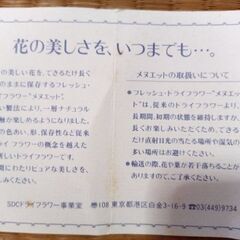 花の美しさを、いつまでも…。
の美しい花を、できるだけ長く
のままに保存するフレッシュ・
ライフラワー"メヌエット"。
い製法により、一層ナチュラル
が楽しめるようになりました。
の色あい、形、保存性など従来
ライフラワーの概念を越えた
にわたりピュアな美しさを、
さい。
メヌエットの取扱いについて
●フレッシュ・ドライフラワー"メヌエッ
ト"は、従来のドライフラワーより、
長期間、初期の状態を維持しますか
、長くお楽しみいただくために、で
きるだけ直射日光の当たる場所や湿気の
多い場所はお避けください。
●輸送の際、花や葉が
ございますが、ご了承ください。
SDCF ドライフラワー事業室 〒108 東京都港区白金3-16-9 ☎03(449)9734